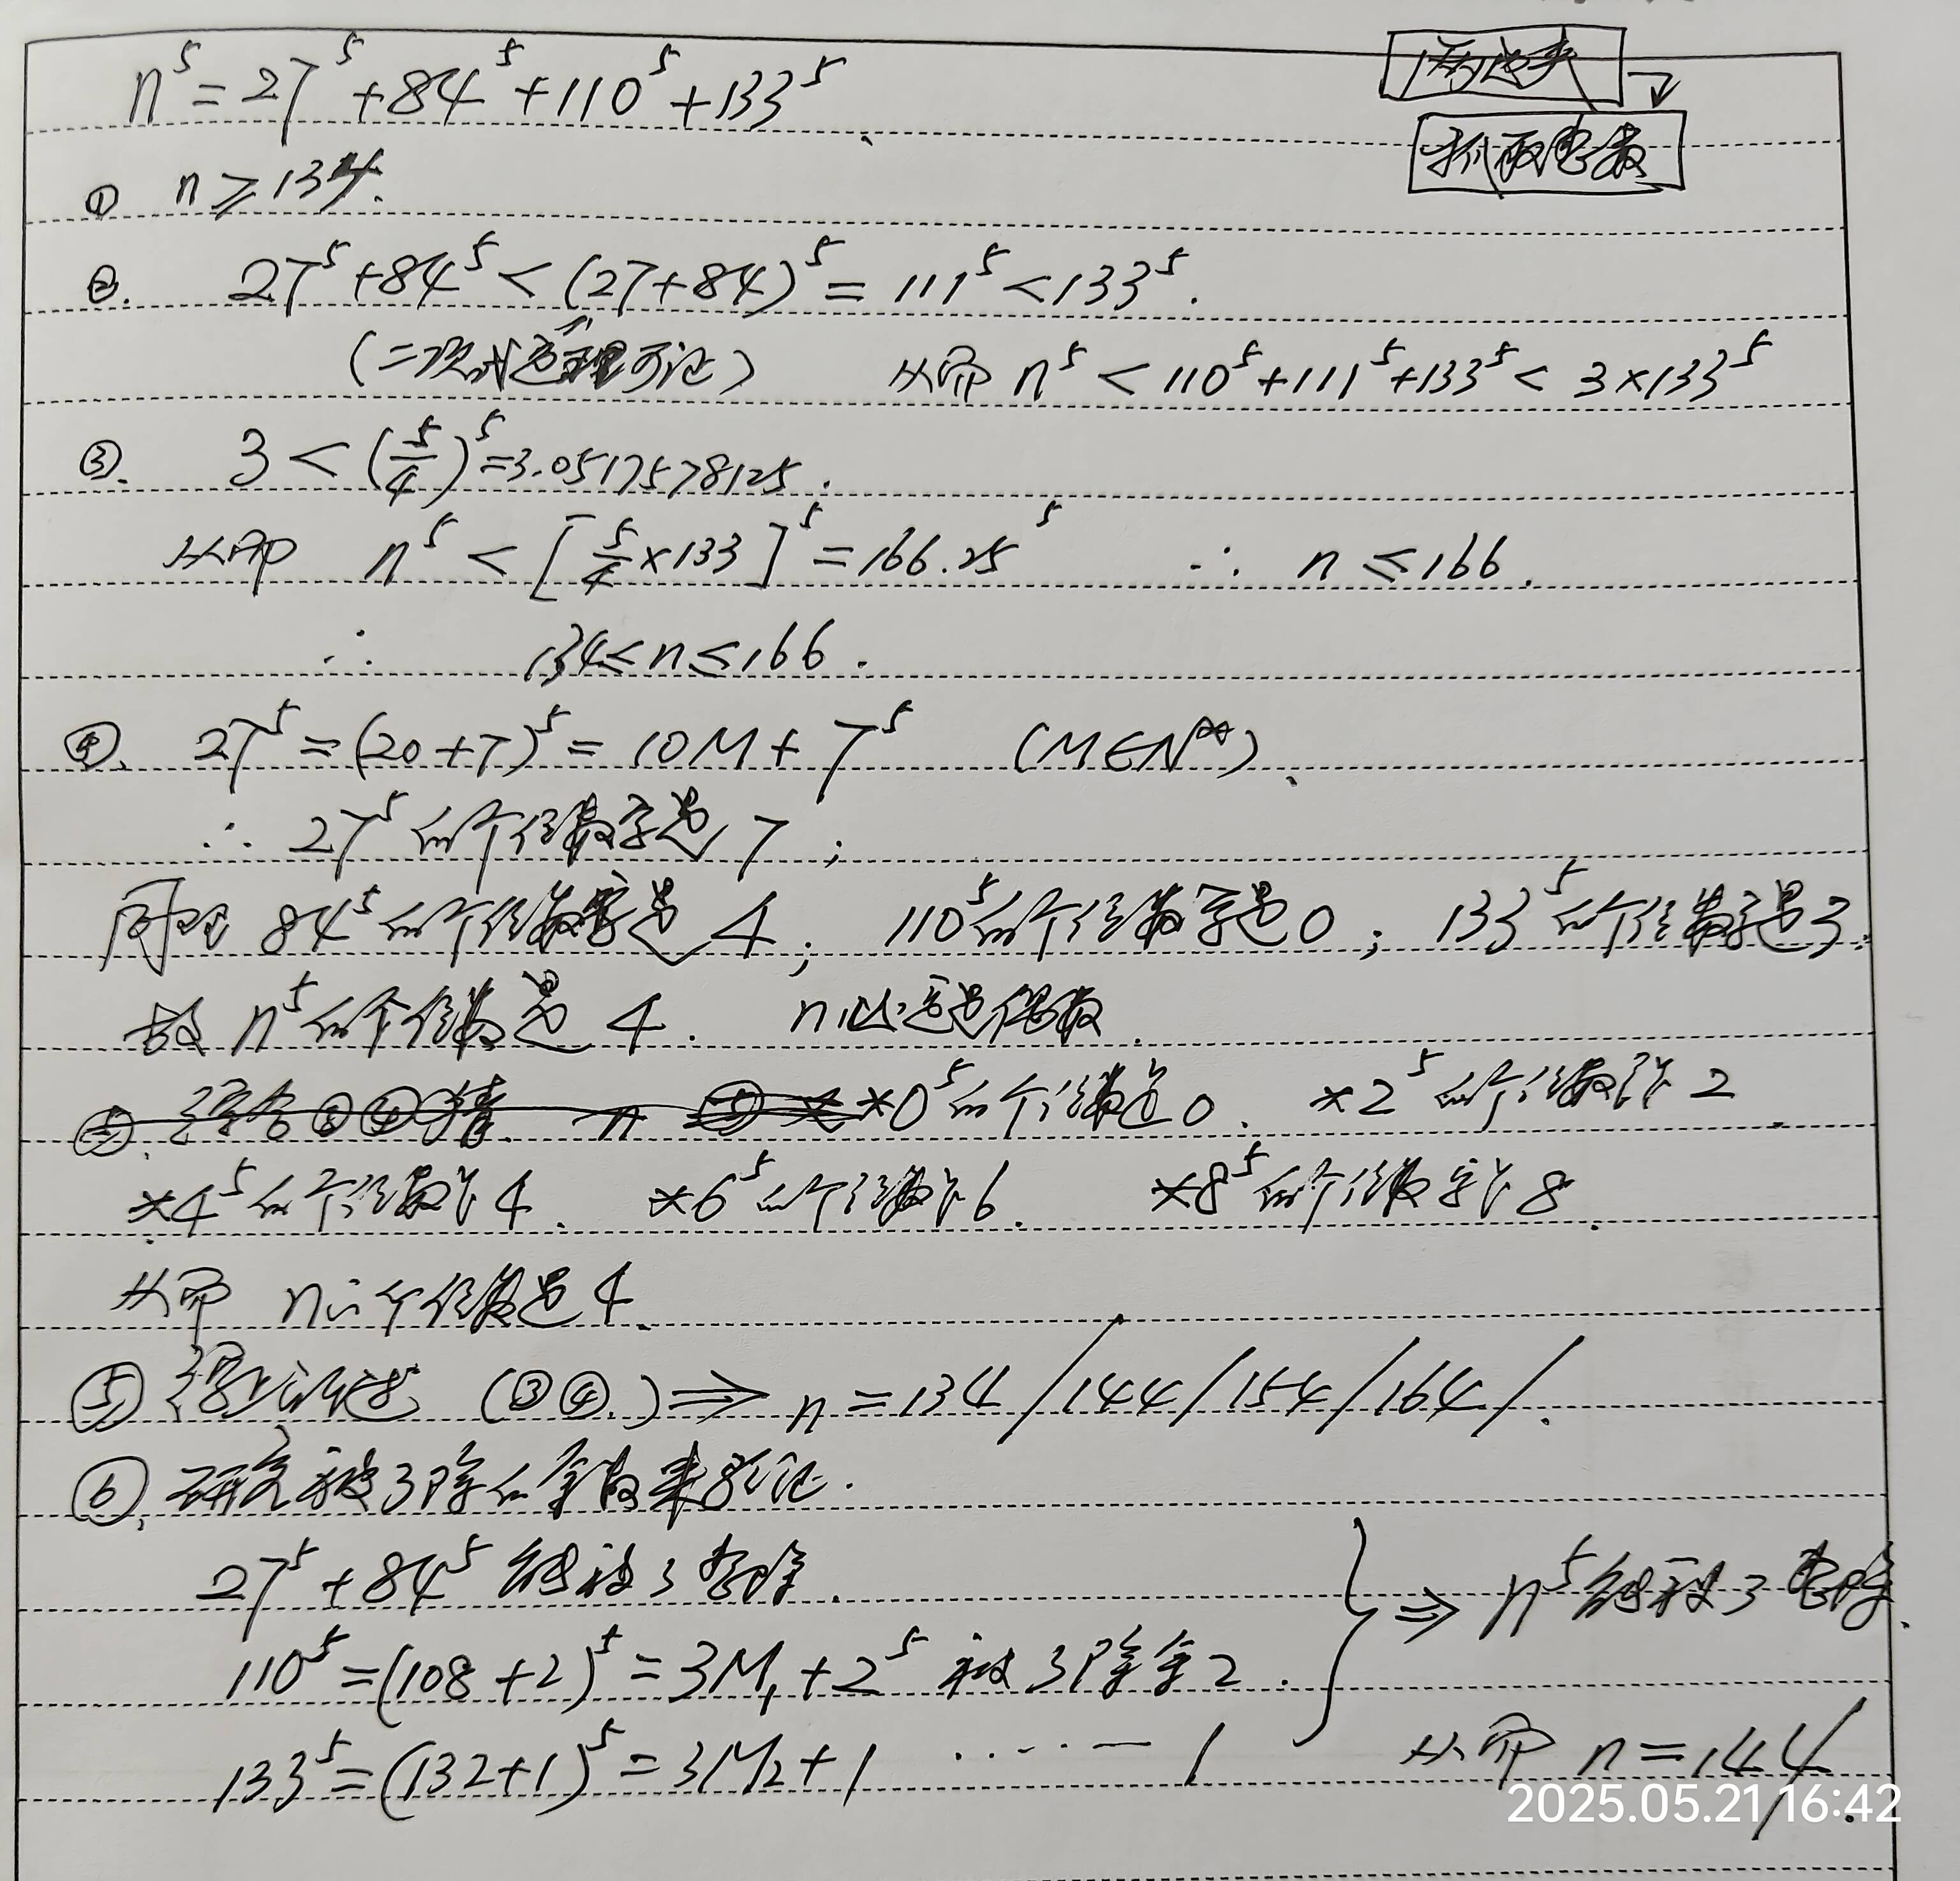 n⁵ = 27⁵ + 84⁵ + 110⁵ + 133⁵
两边夹
抓两边数
① n ≥ 134.
②. 27⁵ + 84⁵ < (27+84)⁵ = 111⁵ < 133⁵.
(二项式定理可证) 从而 n⁵ < 110⁵ + 111⁵ + 133⁵ < 3×133⁵
③. 3 < (5/4)⁵ = 3.0517578125.
从而 n⁵ < [5/4×133]⁵ = 166.25⁵ ∴ n ≤ 166.
∴ 134 ≤ n ≤ 166.
④. 27⁵ = (20+7)⁵ = 10M + 7⁵ (M∈N*).
∴ 27⁵的个位数字是7;
同理 84⁵的个位数字是4; 110⁵的个位数字是0; 133⁵的个位数字是3.
故 n⁵的个位数是4. n必定是偶数.
⑤. 综合③④猜. n ⑤ * *0⁵的个位数是0. *2⁵的个位数是2.
*4⁵的个位数是4. *6⁵的个位数是6. *8⁵的个位数字是8.
从而 n的个位数是4.
⑤ (③④.) ⇒ n = 134/144/154/164/.
⑥. 研究被3除的余数来验证.
27⁵ + 84⁵ 能被3整除.
110⁵ = (108+2)⁵ = 3M₁ + 2⁵ 被3除余2. ⇒ n⁵能被3整除.
133⁵ = (132+1)⁵ = 3M₂ + 1 ...... 1 从而 n = 144.
2025.05.21 16:42